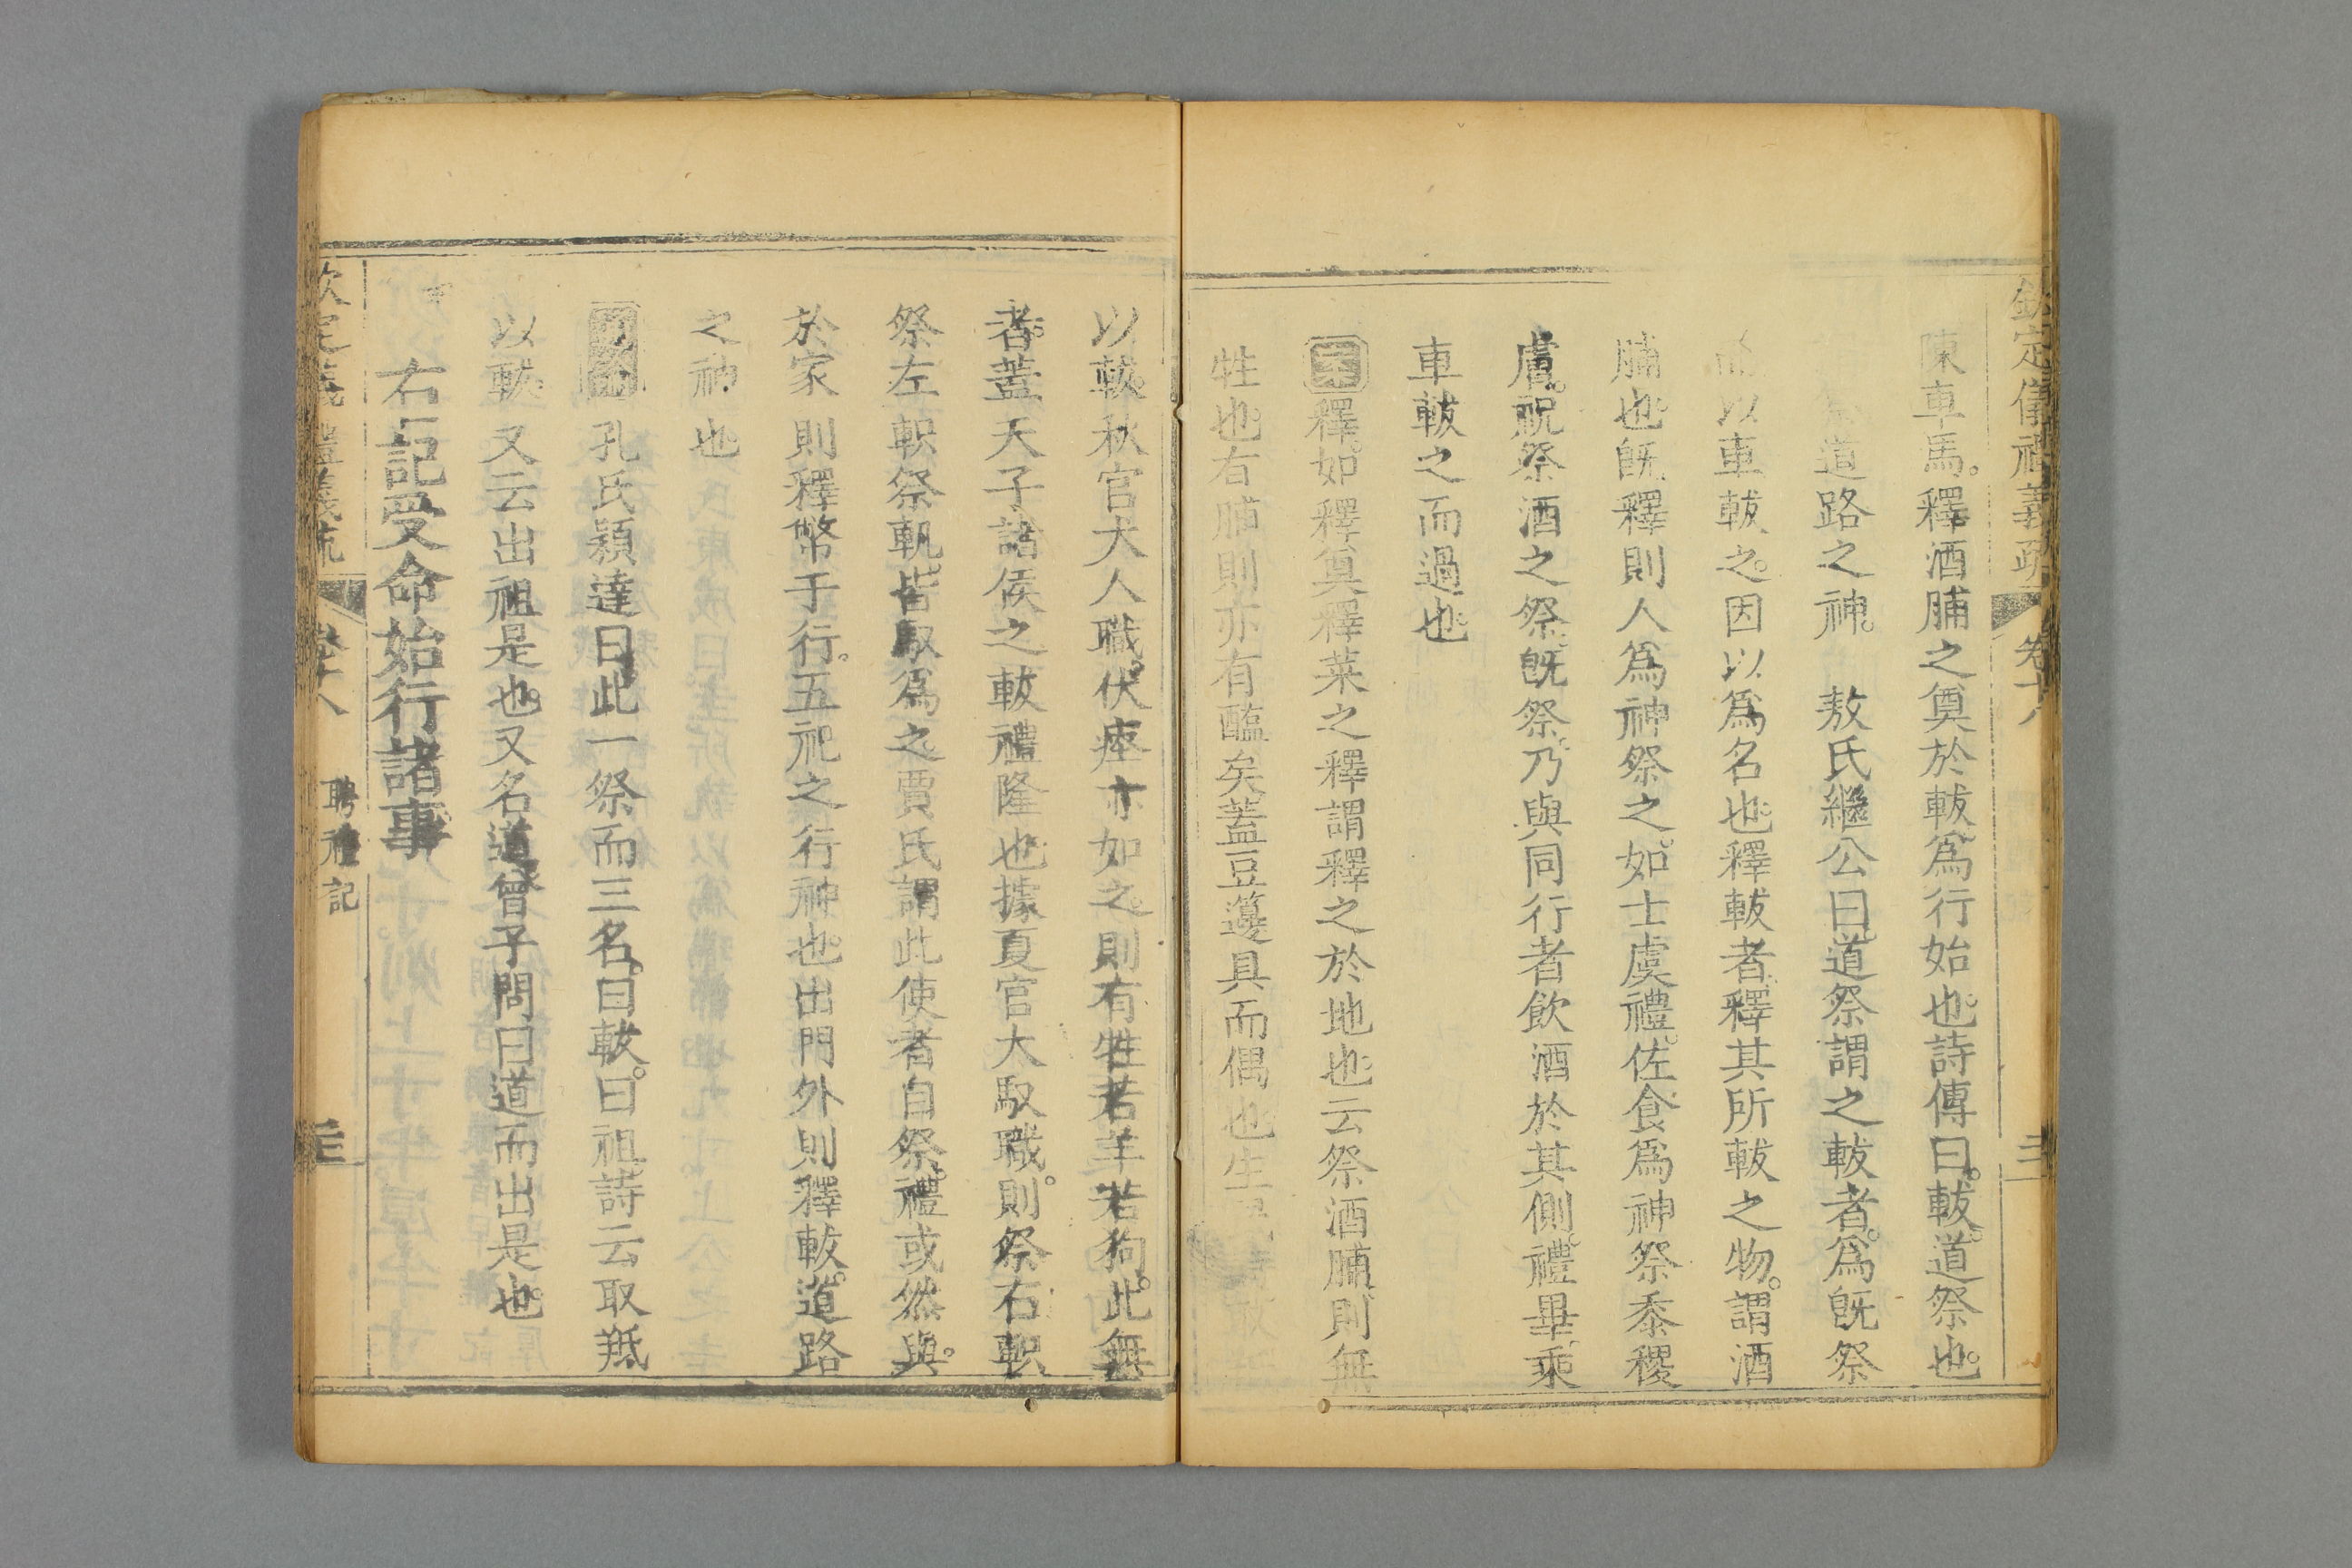 欽定儀禮義疏 卷十八
陳車馬。釋酒脯之奠於軷爲行始也。詩傳曰。軷。道祭也。
道路之神。 敖氏繼公曰。道祭謂之軷者。爲既祭
而以車軷之。因以爲名也。釋軷者。釋其所軷之物。謂酒
脯也。既釋則人爲神祭之。如士虞禮。佐食爲神祭黍稷
膚。祝祭酒之祭。既祭。乃與同行者飲酒於其側。禮畢。乘
車軷之而過也。
案釋。如釋奠釋菜之釋。謂釋之於地也。云祭酒脯。則無
牲也。有脯則亦有醢矣。蓋豆籩具而偶也。生
以軷。秋官犬人職。伏瘞亦如之。則有牲。若羊若狗。此無
者。蓋天子諸侯之軷禮隆也。據夏官大馭職。則祭右軹
祭左軹祭軓。皆馭爲之。賈氏謂此使者自祭。禮或然與。
於家則釋幣于行。五祀之行神也。出門外則釋軷。道路
之神也。
孔氏穎達曰。此一祭而三名。曰軷。曰祖。詩云取羝
以軷。又云出祖是也。又名道。曾子問曰道而出是也。
右記受命始行諸事
欽定儀禮義疏 卷十八 聘禮記